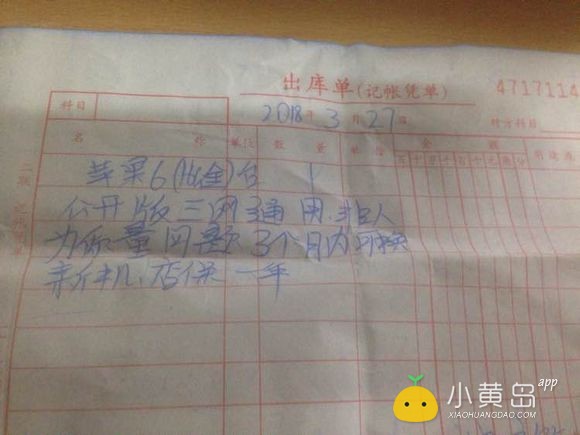 出库单(记帐凭单) 4717114
科目 2018年3月27日 对方科目
名 称 单位 数 量 单价 金 额
百十万千百十元角分
苹果6(铂金)台 1
公开版三网通用.非人
为你量问题3个月内可换
新机,店保一年
小黄岛app
XIAOHUANGDAO.COM